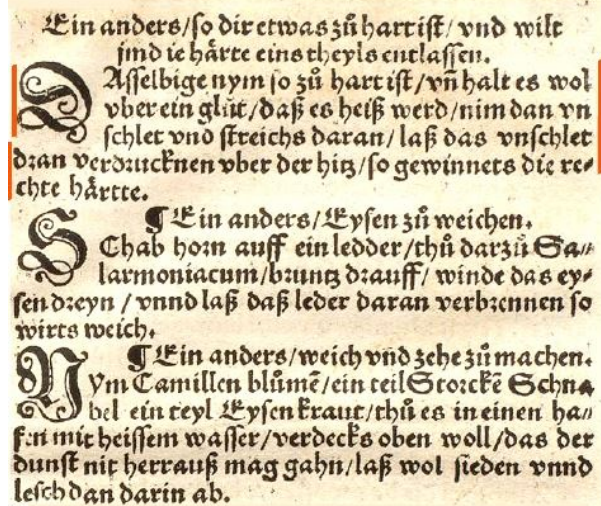 Ein anders/so dir etwas zů hart ist/ vnd wilt
jmd ie härte eins theyls entlassen.
DAsselbige nym so zů hart ist/vñ halt es wol
vber ein glůt/daß es heiß werd/nim dan vn
schlet vnd streichs daran/ laß das vnschlet
dran verdrucknen vber der hitz/so gewinnets die re⸗
chte härtte.
¶ Ein anders/Eysen zů weichen.
SChab horn auff ein ledder/thů darzů Sa⸗
larmoniacum/bruntz drauff/ winde das ey⸗
sen dreyn / vnnd laß daß leder daran verbrennen so
wirts weich.
¶ Ein anders/weich vnd zehe zů machen.
NYm Camillen blůmē/ein teil Storckē Schna
bel ein teyl Eysenkraut/thů es in einen ha⸗
fen mit heissem wasser/verdecks oben woll/das der
dunst nit herrauß mag gahn/laß wol sieden vnnd
lesch dan darin ab.